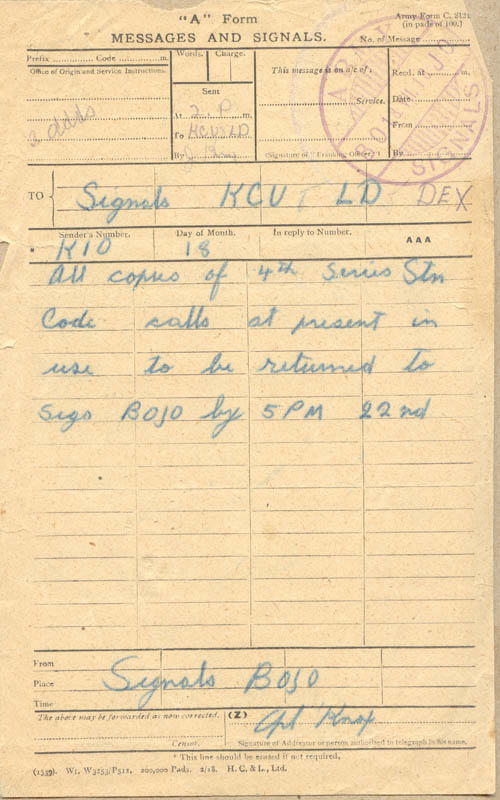 "A" Form
Army Form C. 2121
(in pads of 100.)
MESSAGES AND SIGNALS.
No. of Message
Prefix Code m.
Words. Charge.
This message is on a/c of:
Recd. at m.
Office of Origin and Service Instructions.
2 adds
Sent
At 2 P m.
To KCU & LD
By
Service.
(Signature of "Franking Officer")
Date
From
By
SIGNALS
TO Signals KCU LD DEX
Sender's Number. Day of Month. In reply to Number. AAA
* K10 18
All copies of 4th Series Stn
Code calls at present in
use to be returned to
Sigs BOJO by 5 PM 22nd
From
Place Signals BOJO
Time
The above may be forwarded as now corrected. (Z) Cpl Knox
Censor. Signature of Addressor or person authorised to telegraph in his name.
* This line should be erased if not required.
(1539). Wt. W3253/P511. 200,000 Pads. 2/18. H. C. & L., Ltd.